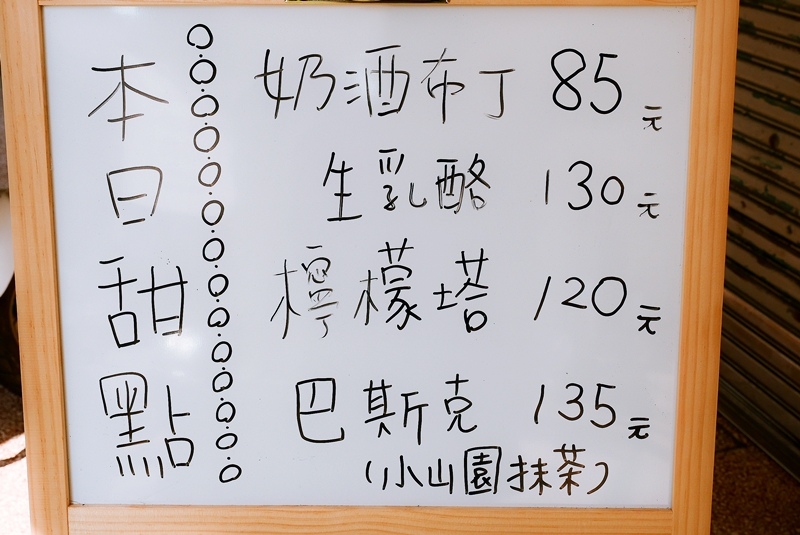 本日甜點
奶酒布丁 85元
生乳酪 130元
檸檬塔 120元
巴斯克 135元
(小山園抹茶)